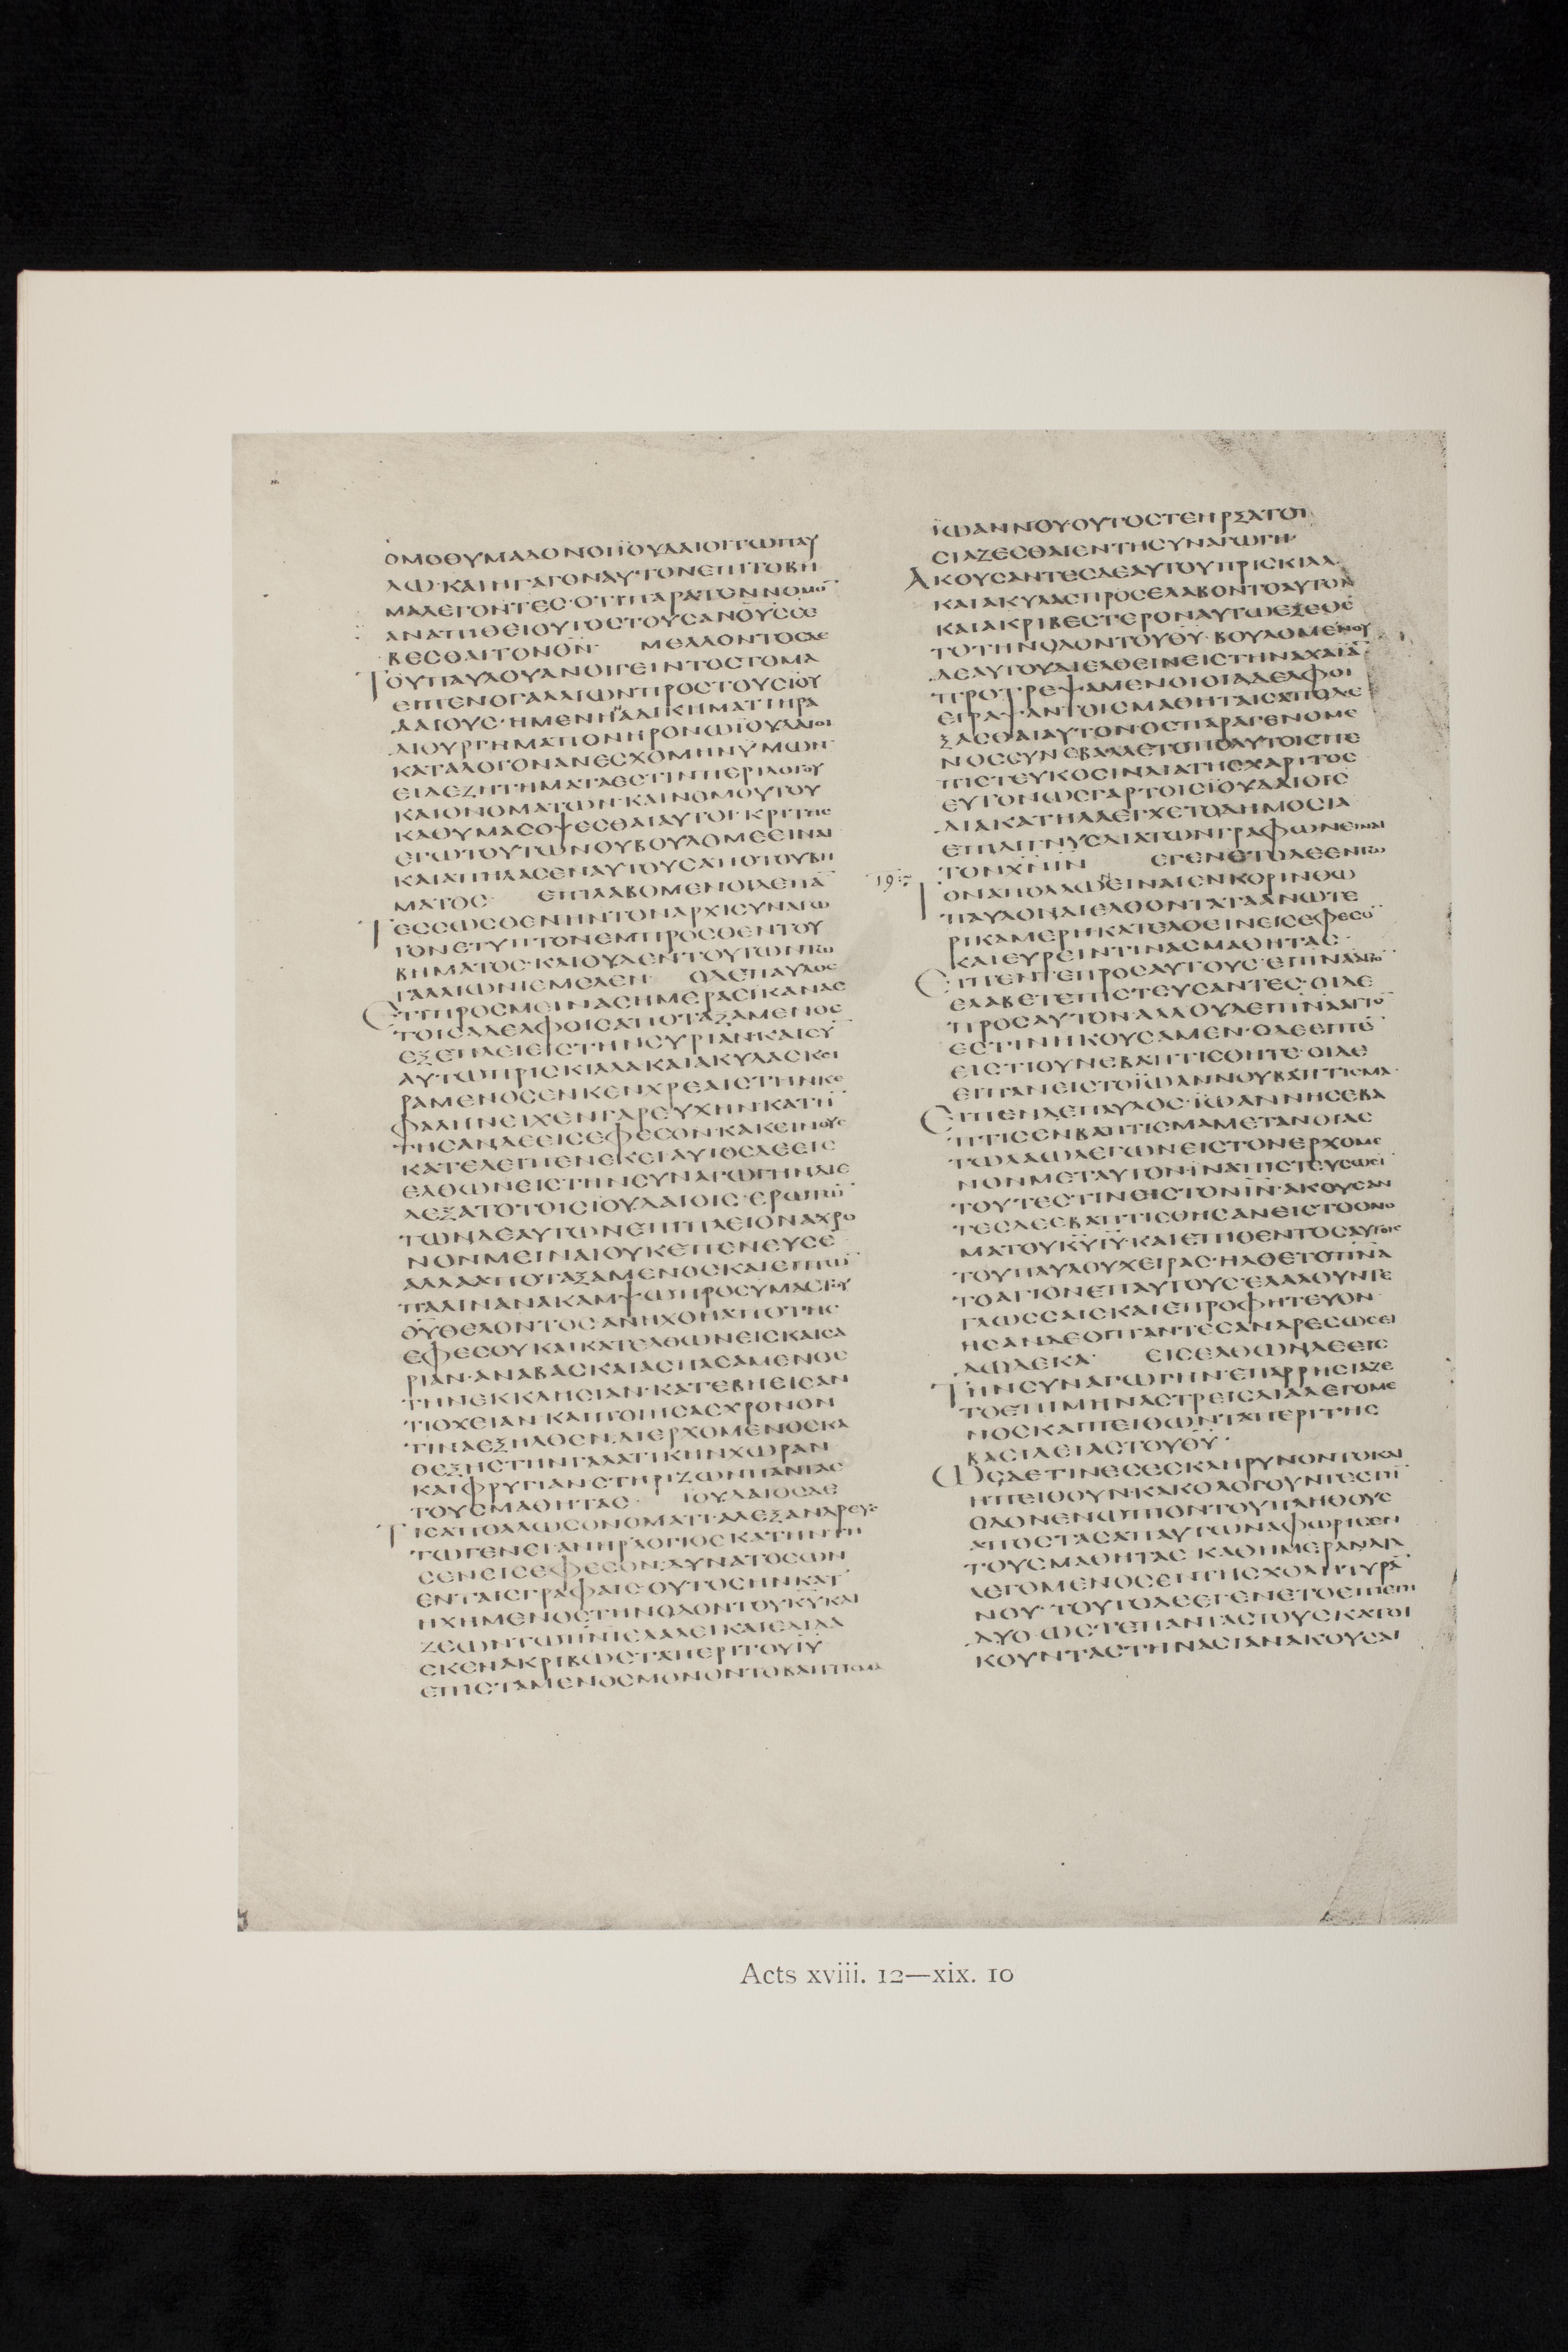 ΟΜΟΘΥΜΑΔΟΝΟΙΪΟΥΔΑΙΟΙΤΩΠΑΥ
ΛΩ·ΚΑΙΗΓΑΓΟΝΑΥΤΟΝΕΠΙΤΟΒΗ
ΜΑΛΕΓΟΝΤΕϹ·ΟΤΙΠΑΡΑΤΟΝΝΟΜΟ̅
ΑΝΑΠΙΘΕΙΟΥΤΟϹΤΟΥϹΑΝΟΥ̅ϹϹΕ
ΒΕϹΘΑΙΤΟΝΘ̅Ν̅· ΜΕΛΛΟΝΤΟϹΔΕ
ΤΟΥΠΑΥΛΟΥΑΝΟΙΓΕΙΝΤΟϹΤΟΜΑ
ΕΙΠΕΝΟΓΑΛΛΙΩΝΠΡΟϹΤΟΥϹΪΟΥ
ΔΑΙΟΥϹ·ΗΜΕΝΗΝΑΔΙΚΗΜΑΤΙΗΡΑ
ΔΙΟΥΡΓΗΜΑΠΟΝΗΡΟΝΩΪΟΥΔΑΙΟΙ
ΚΑΤΑΛΟΓΟΝΑΝΕϹΧΟΜΗΝΫΜΩΝ·
ΕΙΔΕΖΗΤΗΜΑΤΑΕϹΤΙΝΠΕΡΙΛΟΓΟΥ
ΚΑΙΟΝΟΜΑΤΩΝ·ΚΑΙΝΟΜΟΥΤΟΥ
ΚΑΘΥΜΑϹΟΨΕϹΘΑΙΑΥΤΟΙ·ΚΡΙΤΗϹ
ΕΓΩΤΟΥΤΩΝΟΥΒΟΥΛΟΜΕΕΙΝΑΙ
ΚΑΙΑΠΗΛΑϹΕΝΑΥΤΟΥϹΑΠΟΤΟΥΒΗ
ΜΑΤΟϹ· ΕΠΙΛΑΒΟΜΕΝΟΙΔΕΠΑ̅
ΤΕϹϹΩϹΘΕΝΗΝΤΟΝΑΡΧΙϹΥΝΑΓΩ
ΓΟΝΕΤΥΠΤΟΝΕΜΠΡΟϹΘΕΝΤΟΥ
ΒΗΜΑΤΟϹ·ΚΑΙΟΥΔΕΝΤΟΥΤΩΝΤΩ
ΓΑΛΛΙΩΝΙΕΜΕΛΕΝ· ΟΔΕΠΑΥΛΟϹ
ΕΤΙΠΡΟϹΜΕΙΝΑϹΗΜΕΡΑϹΙΚΑΝΑϹ
ΤΟΙϹΑΔΕΛΦΟΙϹΑΠΟΤΑΞΑΜΕΝΟϹ
ΕΞΕΠΛΕΙΕΙϹΤΗΝϹΥΡΙΑΝ·ΚΑΙϹΥ̅
ΑΥΤΩΠΡΙϹΚΙΛΛΑΚΑΙΑΚΥΛΑϹΚΕΙ
ΡΑΜΕΝΟϹΕΝΚΕΝΧΡΕΑΙϹΤΗΝΚΕ
ΦΑΛΗΝΕΙΧΕΝΓΑΡΕΥΧΗΝ·ΚΑΤΗ̅
ΤΗϹΑΝΔΕΕΙϹΕΦΕϹΟΝ·ΚΑΚΕΙΝΟΥϹ
ΚΑΤΕΛΕΙΠΕΝΕΚΕΙΑΥΤΟϹΔΕΕΙϹ
ΕΛΘΩΝΕΙϹΤΗΝϹΥΝΑΓΩΓΗΝΔΙΕ
ΛΕΞΑΤΟΤΟΙϹΪΟΥΔΑΙΟΙϹ·ΕΡΩΤΩ̅
ΤΩΝΔΕΑΥΤΩΝΕΠΙΠΛΕΙΟΝΑΧΡΟ
ΝΟΝΜΕΙΝΑΙΟΥΚΕΠΕΝΕΥϹΕ̅
ΑΛΛΑΑΠΟΤΑΞΑΜΕΝΟϹΚΑΙΕΙΠΩ̅
ΠΑΛΙΝΑΝΑΚΑΜΨΩΠΡΟϹΥΜΑϹΤΟΥ
Θ̅Υ̅ΘΕΛΟΝΤΟϹΑΝΗΧΘΗΑΠΟΤΗϹ
ΕΦΕϹΟΥΚΑΙΚΑΤΕΛΘΩΝΕΙϹΚΑΙϹΑ
ΡΙΑΝ·ΑΝΑΒΑϹΚΑΙΑϹΠΑϹΑΜΕΝΟϹ
ΤΗΝΕΚΚΛΗϹΙΑΝ·ΚΑΤΕΒΗΕΙϹΑΝ
ΤΙΟΧΕΙΑΝ·ΚΑΙΠΟΙΗϹΑϹΧΡΟΝΟΝ
ΤΙΝΑΕΞΗΛΘΕΝ·ΔΙΕΡΧΟΜΕΝΟϹΚΑ
ΘΕΞΗϹΤΗΝΓΑΛΑΤΙΚΗΝΧΩΡΑΝ
ΚΑΙΦΡΥΓΙΑΝϹΤΗΡΙΖΩΝΠΑΝΤΑϹ
ΤΟΥϹΜΑΘΗΤΑϹ· ΪΟΥΔΑΙΟϹΔΕ
ΤΙϹΑΠΟΛΛΩϹΟΝΟΜΑΤΙ·ΑΛΕΞΑΝΔΡΕΥϹ
ΤΩΓΕΝΕΙ·ΑΝΗΡΛΟΓΙΟϹΚΑΤΗΝΤΗ
ϹΕΝΕΙϹΕΦΕϹΟΝ·ΔΥΝΑΤΟϹΩΝ
ΕΝΤΑΙϹΓΡΑΦΑΙϹ·ΟΥΤΟϹΗΝΚΑΤ
ΗΧΗΜΕΝΟϹΤΗΝΟΔΟΝΤΟΥΚ̅Υ̅·ΚΑΙ
ΖΕΩΝΤΩΠ̅Ν̅Ι̅ΕΛΑΛΕΙΚΑΙΕΔΙΔΑ
ϹΚΕΝΑΚΡΙΒΩϹΤΑΠΕΡΙΤΟΥΙ̅Υ̅
ΕΠΙϹΤΑΜΕΝΟϹΜΟΝΟΝΤΟΒΑΠΤΙϹΜΑ
ΪΩΑΝΝΟΥΟΥΤΟϹΤΕΗΡΞΑΤΟΠ
ϹΙΑΖΕϹΘΑΙΕΝΤΗϹΥΝΑΓΩΓΗ·
ΑΚΟΥϹΑΝΤΕϹΔΕΑΥΤΟΥΠΡΙϹΚΙΛΛΑ
ΚΑΙΑΚΥΛΑϹΠΡΟϹΕΛΑΒΟΝΤΟΑΥΤΟΝ
ΚΑΙΑΚΡΙΒΕϹΤΕΡΟΝΑΥΤΩΕΞΕΘΕ
ΤΟΤΗΝΟΔΟΝΤΟΥΘ̅Υ̅·ΒΟΥΛΟΜΕΝΟΥ
ΔΕΑΥΤΟΥΔΙΕΛΘΕΙΝΕΙϹΤΗΝΑΧΑΪΑ̅
ΠΡΟΤΡΕΨΑΜΕΝΟΙΟΙΑΔΕΛΦΟΙ
ΕΓΡΑΨΑΝΤΟΙϹΜΑΘΗΤΑΙϹΑΠΟΔΕ
ΞΑϹΘΑΙΑΥΤΟΝ·ΟϹΠΑΡΑΓΕΝΟΜΕ
ΝΟϹϹΥΝΕΒΑΛΛΕΤΟΠΟΛΥΤΟΙϹΠΕ
ΠΙϹΤΕΥΚΟϹΙΝΔΙΑΤΗϹΧΑΡΙΤΟϹ
ΕΥΤΟΝΩϹΓΑΡΤΟΙϹΪΟΥΔΑΙΟΙϹ
ΔΙΑΚΑΤΗΛΕΓΧΕΤΟΔΗΜΟϹΙΑ
ΕΠΙΔΙΓΝΥϹΔΙΑΤΩΝΓΡΑΦΩΝΕΙΝΑΙ
ΤΟΝΧ̅Ν̅Ι̅Ν̅ ΕΓΕΝΕΤΟΔΕΕΝΤΩ
19
ΤΟΝΑΠΟΛΛΩΕΙΝΑΙΕΝΚΟΡΙΝΘΩ
ΠΑΥΛΟΝΔΙΕΛΘΟΝΤΑΤΑΑΝΩΤΕ
ΡΙΚΑΜΕΡΗΚΑΤΕΛΘΕΙΝΕΙϹΕΦΕϹΟ̅
ΚΑΙΕΥΡΕΙΝΤΙΝΑϹΜΑΘΗΤΑϹ·
ΕΙΠΕΝΤΕΠΡΟϹΑΥΤΟΥϹ·ΕΙΠ̅Ν̅Α̅ΑΓΙΟ̅
ΕΛΑΒΕΤΕΠΙϹΤΕΥϹΑΝΤΕϹ·ΟΙΔΕ
ΠΡΟϹΑΥΤΟΝ·ΑΛΛΟΥΔΕΙΠ̅Ν̅Α̅ΑΓΙΟ̅
ΕϹΤΙΝΗΚΟΥϹΑΜΕΝ·ΟΔΕΕΙΠΕ̅
ΕΙϹΤΙΟΥΝΕΒΑΠΤΙϹΘΗΤΕ·ΟΙΔΕ
ΕΙΠΑΝΕΙϹΤΟΪΩΑΝΝΟΥΒΑΠΤΙϹΜΑ·
ΕΙΠΕΝΔΕΠΑΥΛΟϹ·ΪΩΑΝΝΗϹΕΒΑ
ΠΤΙϹΕΝΒΑΠΤΙϹΜΑΜΕΤΑΝΟΙΑϹ
ΤΩΛΑΩΛΕΓΩΝΕΙϹΤΟΝΕΡΧΟΜΕ
ΝΟΝΜΕΤΑΥΤΟΝΪΝΑΠΙϹΤΕΥϹΩϹΙ̅
ΤΟΥΤΕϹΤΙΝΕΙϹΤΟΝΙ̅Ν̅·ΑΚΟΥϹΑΝ
ΤΕϹΔΕΕΒΑΠΤΙϹΘΗϹΑΝΕΙϹΤΟΟΝΟ
ΜΑΤΟΥΚ̅Υ̅Ι̅Υ̅·ΚΑΙΕΠΙΘΕΝΤΟϹΑΥΤΟΙϹ
ΤΟΥΠΑΥΛΟΥΧΕΙΡΑϹ·ΗΛΘΕΤΟΠ̅Ν̅Α̅
ΤΟΑΓΙΟΝΕΠΑΥΤΟΥϹ·ΕΛΑΛΟΥΝΤΕ
ΓΛΩϹϹΑΙϹΚΑΙΕΠΡΟΦΗΤΕΥΟΝ·
ΗϹΑΝΔΕΟΙΠΑΝΤΕϹΑΝΔΡΕϹΩϹΕΙ
ΔΩΔΕΚΑ· ΕΙϹΕΛΘΩΝΔΕΕΙϹ
ΤΗΝϹΥΝΑΓΩΓΗΝ·ΕΠΑΡΡΗϹΙΑΖΕ
ΤΟΕΠΙΜΗΝΑϹΤΡΕΙϹΔΙΑΛΕΓΟΜΕ
ΝΟϹΚΑΙΠΕΙΘΩΝΤΑΠΕΡΙΤΗϹ
ΒΑϹΙΛΕΙΑϹΤΟΥΘ̅Υ̅·
ΩϹΔΕΤΙΝΕϹΕϹΚΛΗΡΥΝΟΝΤΟΚΑΙ
ΗΠΕΙΘΟΥΝ·ΚΑΚΟΛΟΓΟΥΝΤΕϹΤΗ̅
ΟΔΟΝΕΝΩΠΙΟΝΤΟΥΠΛΗΘΟΥϹ
ΑΠΟϹΤΑϹΑΠΑΥΤΩΝΑΦΩΡΙϹΕΝ
ΤΟΥϹΜΑΘΗΤΑϹ ΚΑΘΗΜΕΡΑΝΔΙΑ
ΛΕΓΟΜΕΝΟϹΕΝΤΗϹΧΟΛΗΤΥΡΑ̅
ΝΟΥ· ΤΟΥΤΟΔΕΕΓΕΝΕΤΟΕΠΙΕΤΗ
ΔΥΟ·ΩϹΤΕΠΑΝΤΑϹΤΟΥϹΚΑΤΟΙ
ΚΟΥΝΤΑϹΤΗΝΑϹΙΑΝΑΚΟΥϹΑΙ
Acts xviii. 12—xix. 10